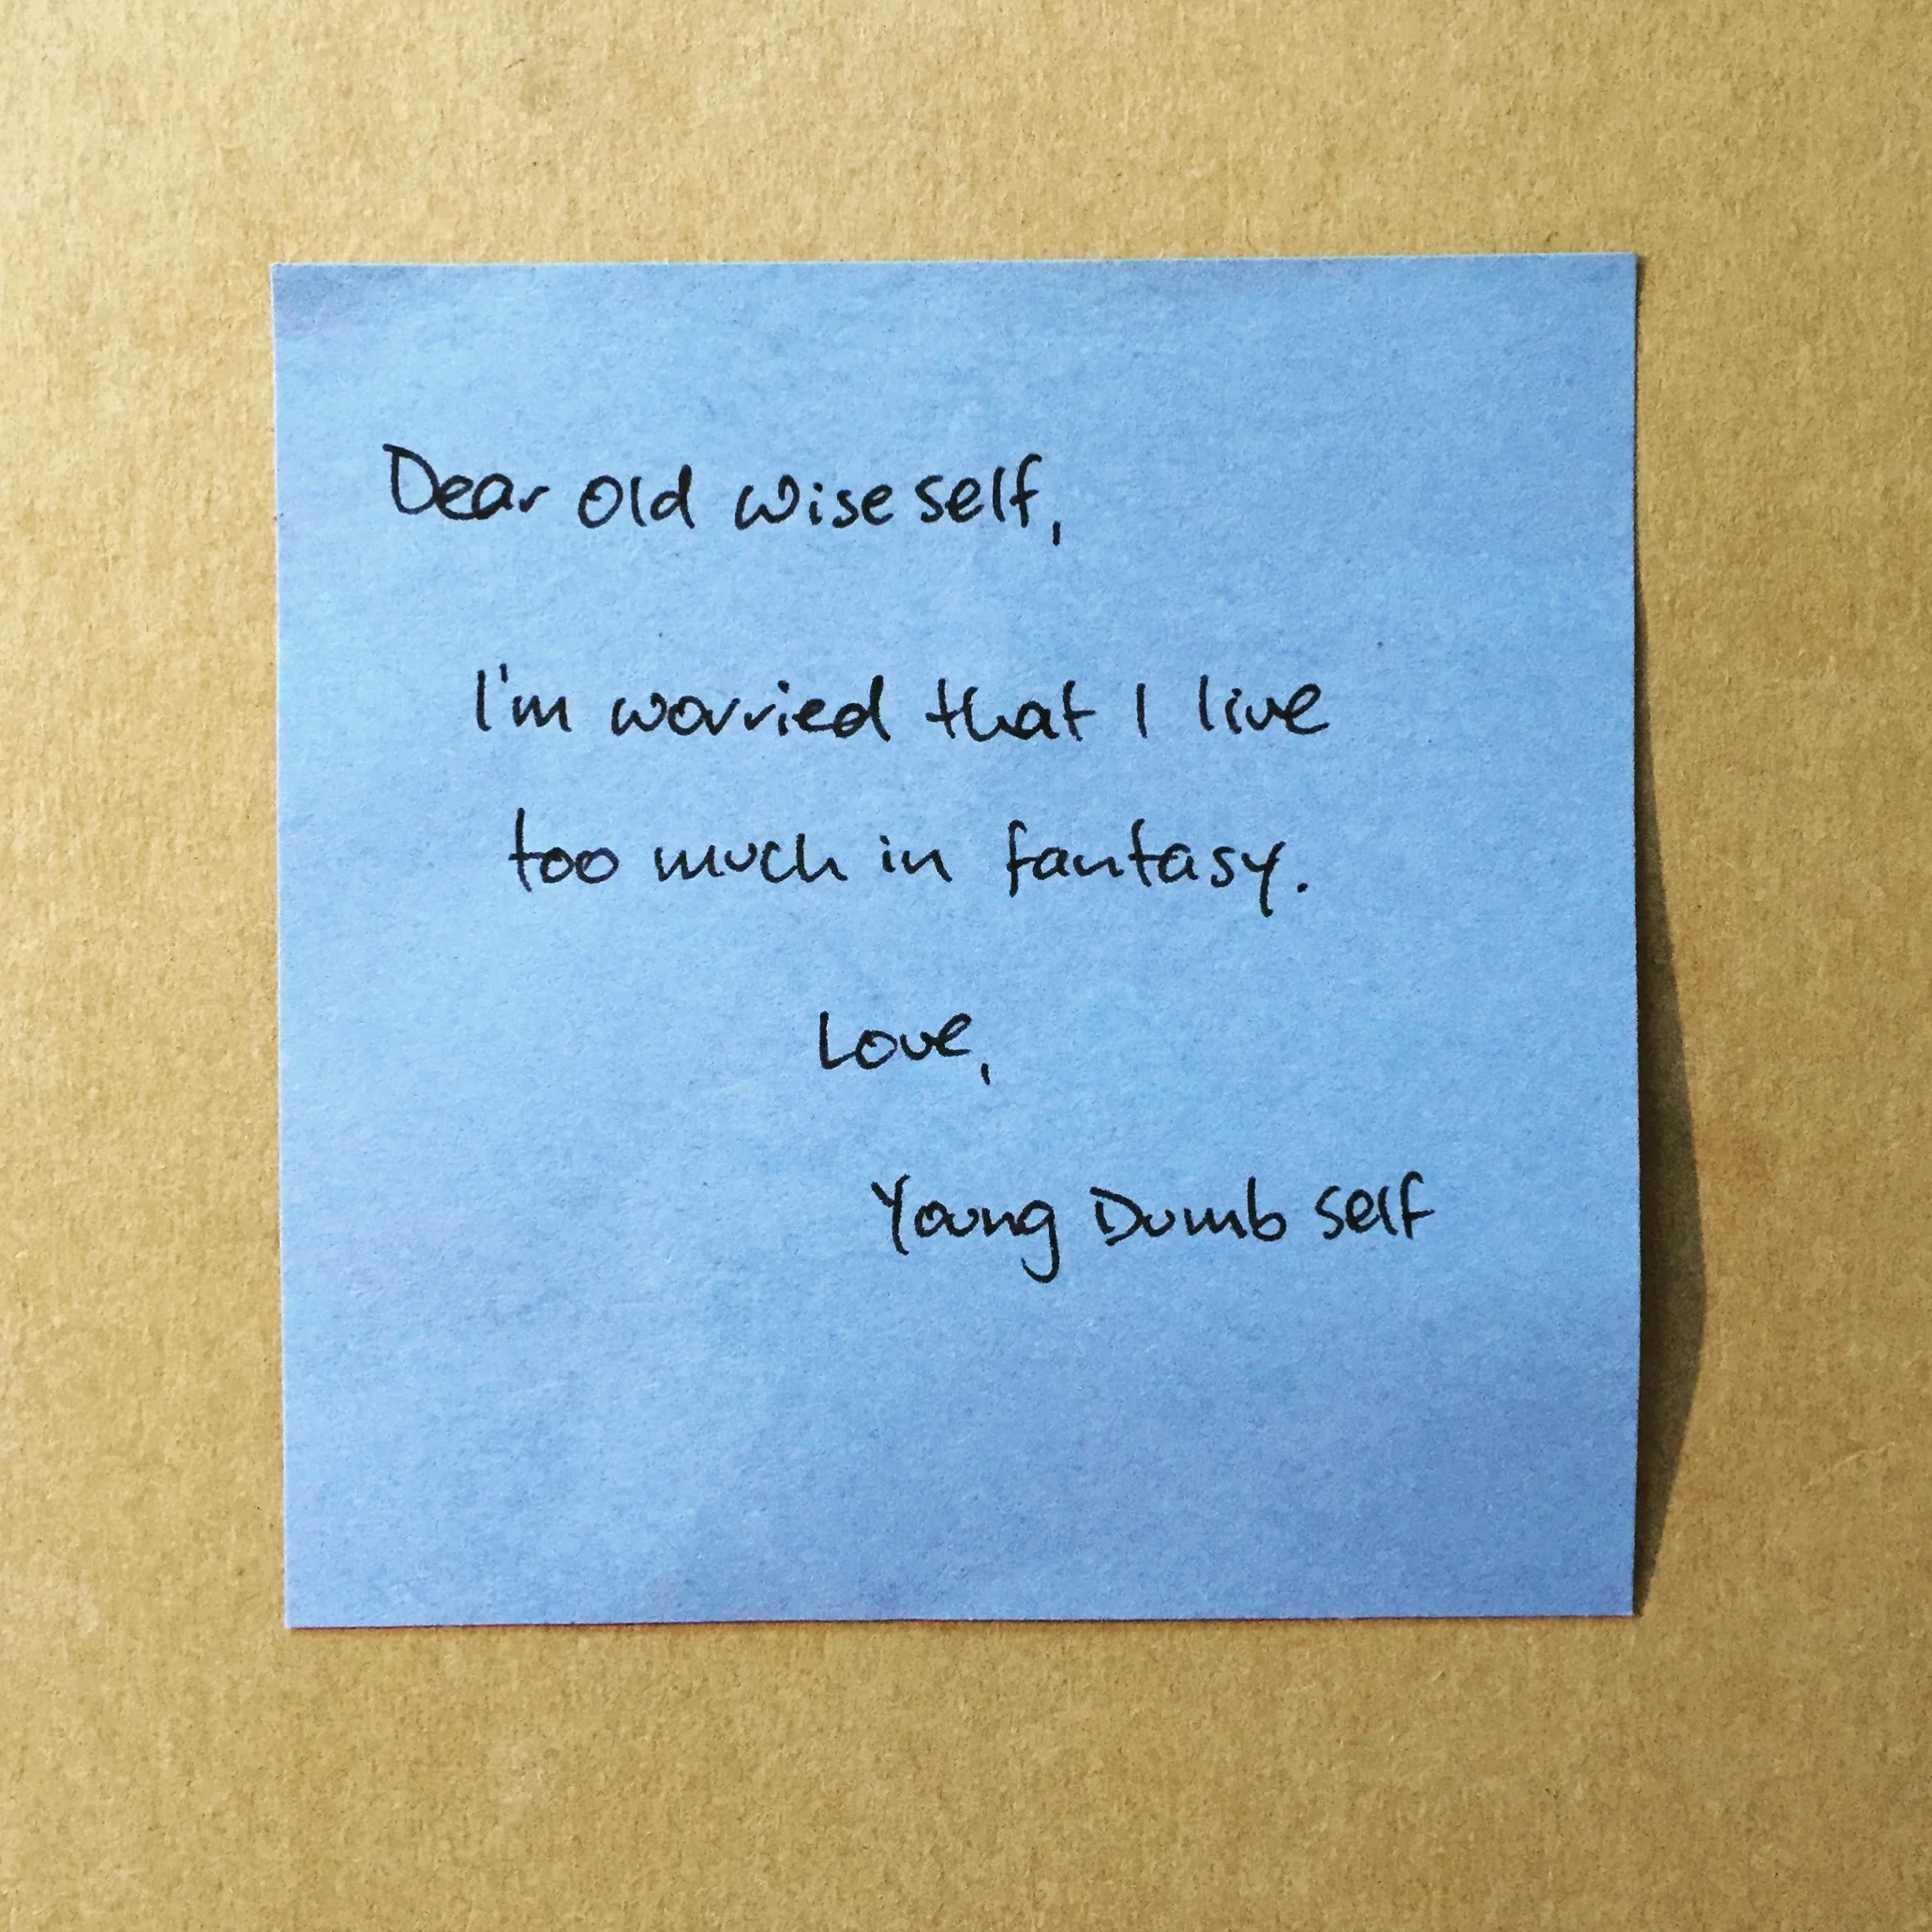 Dear old wise self,
I'm worried that I live
too much in fantasy.
Love,
Young Dumb self